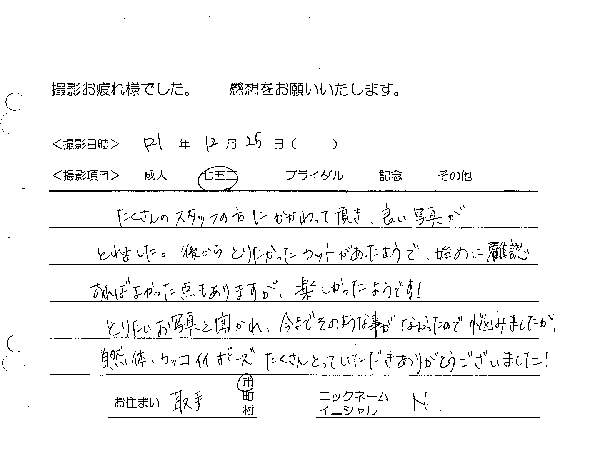 撮影お疲れ様でした。 感想をお願いいたします。
<撮影日時> 21 年 12 月 25 日 ( )
<撮影項目> 成人 七五三 ブライダル 記念 その他
たくさんのスタッフの方にかかわって頂き、良い写真が
とれました。後からとりたかったカットがあったようで、始めに確認
すればよかった点もありますが、楽しかったようです!
とりたいお写真と聞かれ、今までそのような事がなかったので悩みましたが、
自然体・カッコイイポーズたくさんとっていただきありがとうございました!
お住まい 取手 市 町 村 ニックネーム イニシャル N.